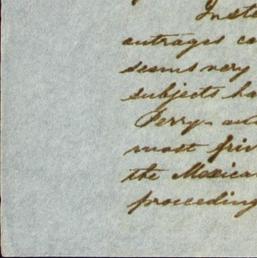 Inste
outrages co
seems very
subjects ha
Perry
most friv
the Mexica
proceeding